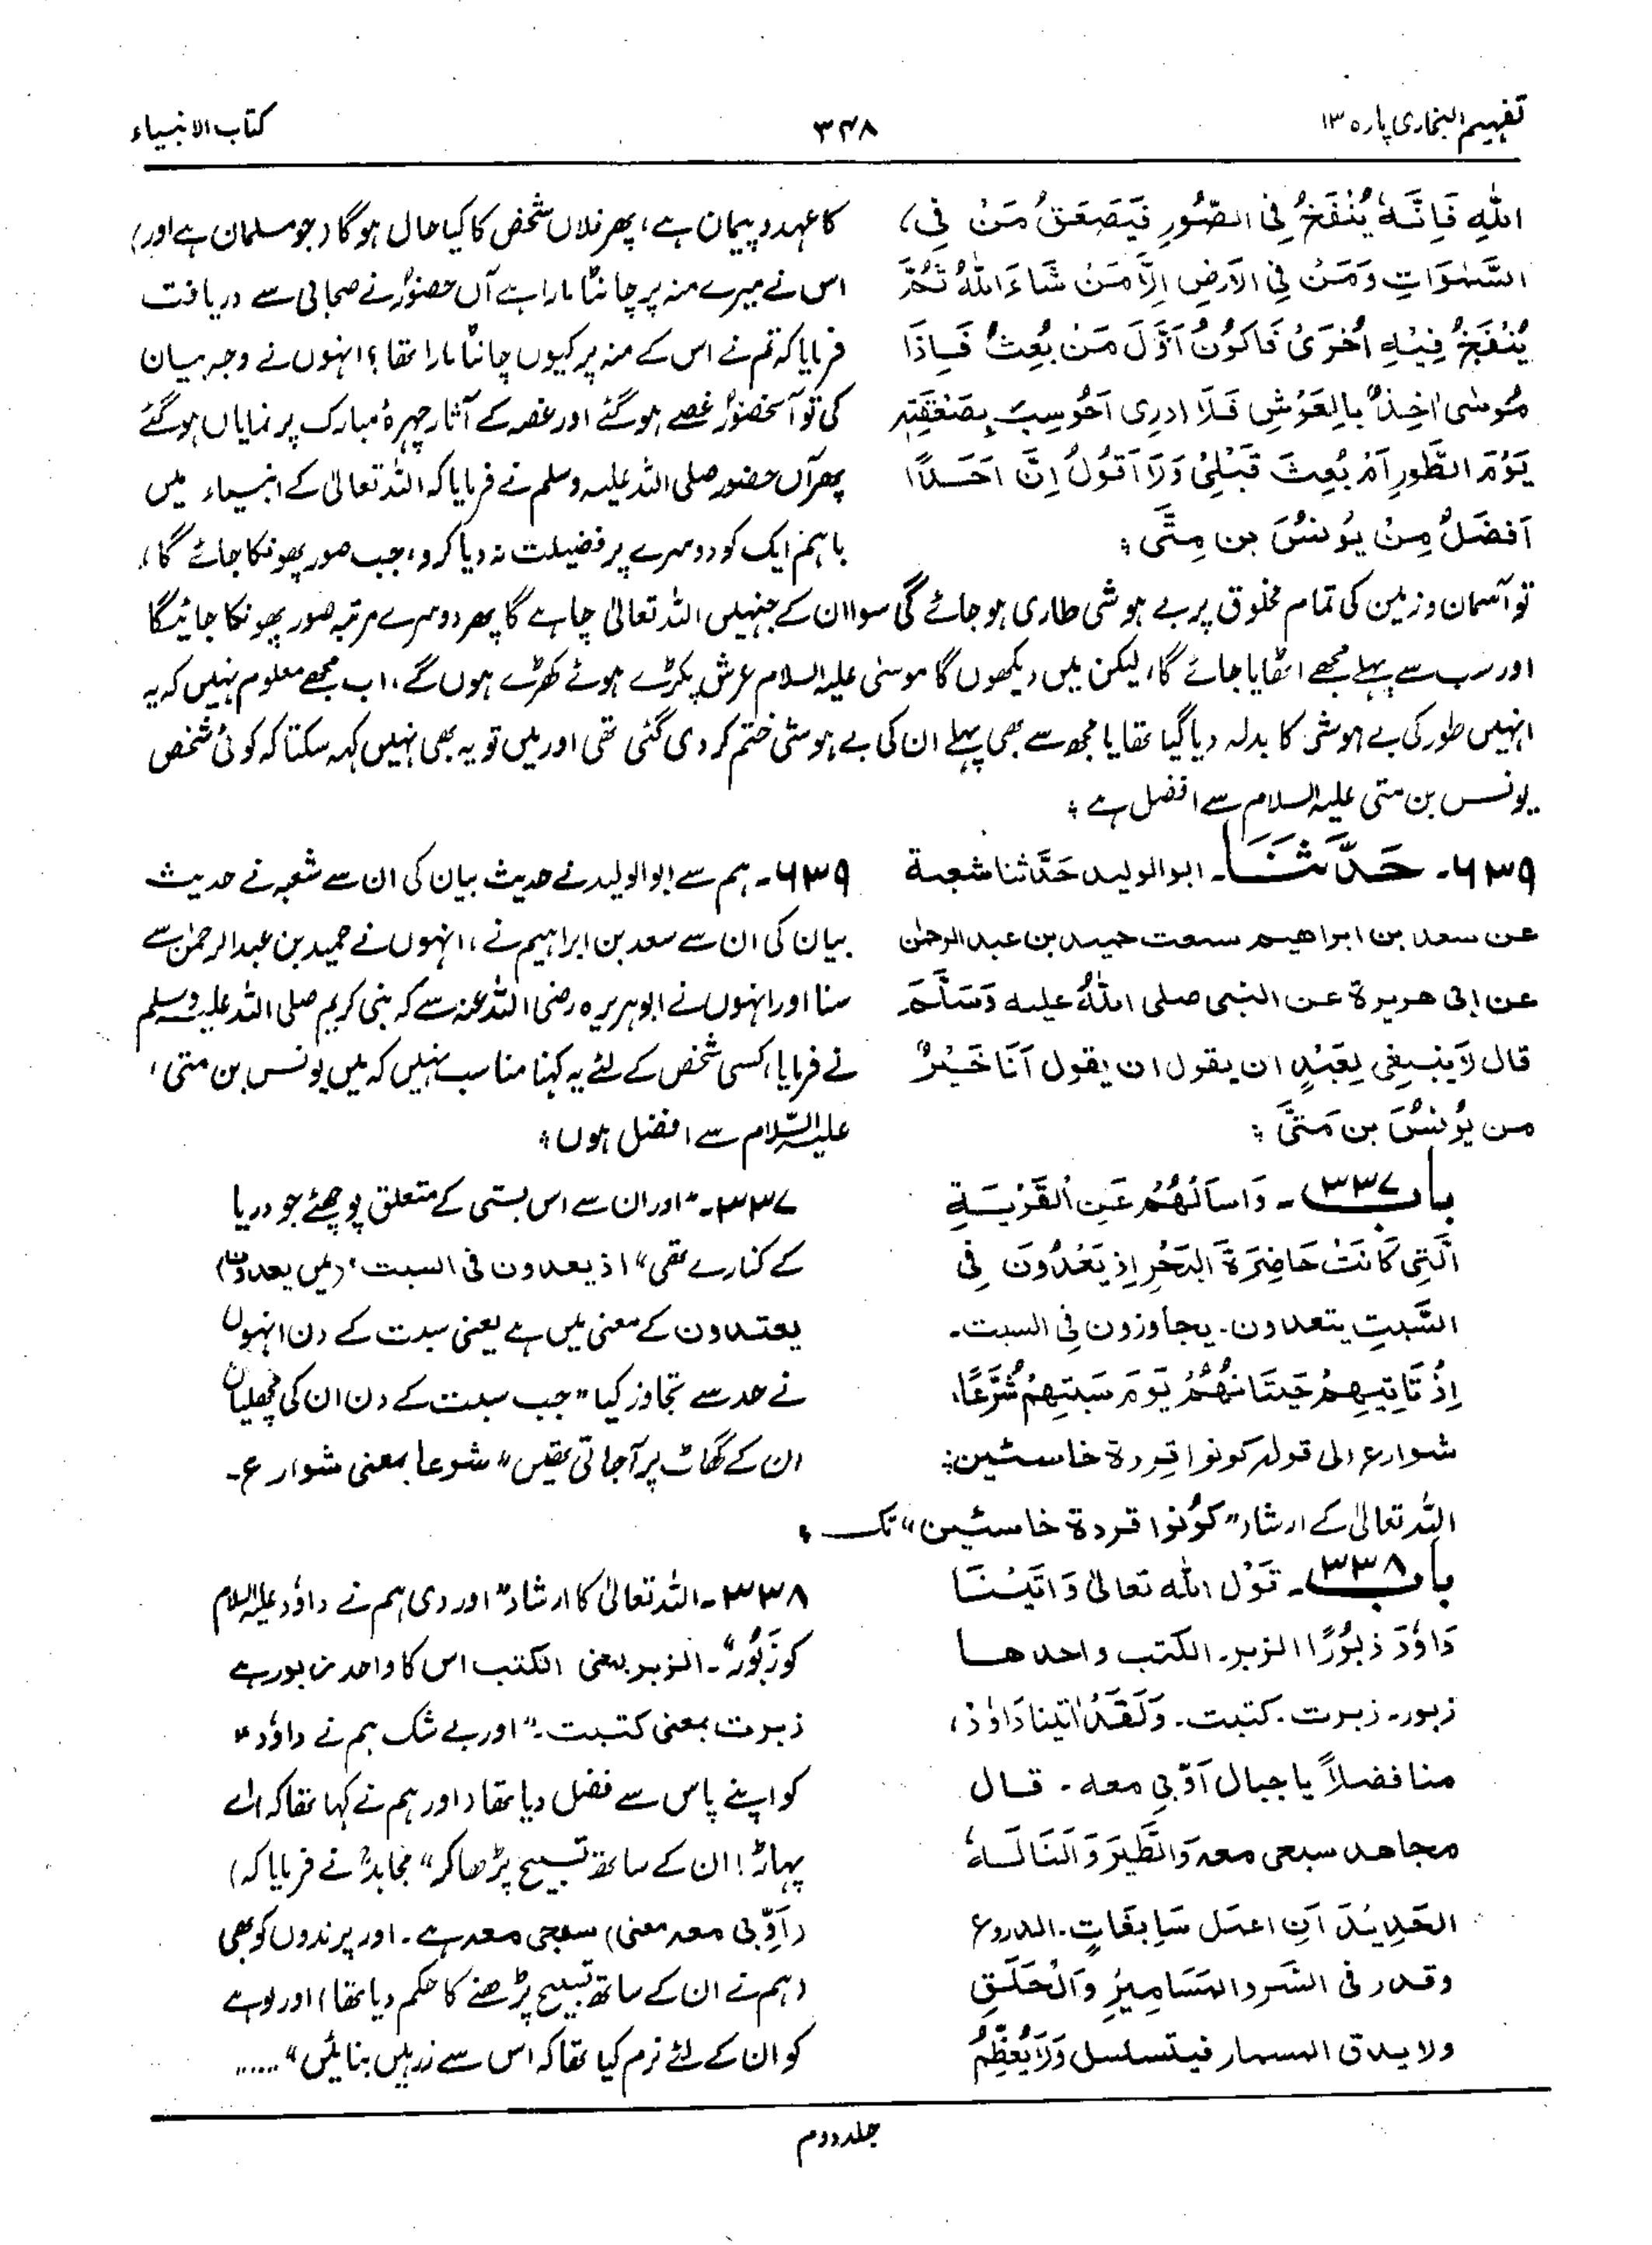 تفہیم البخاری پارہ ۱۳
۳۴۸
کتاب الانبیاء
اللّٰهِ فَاِنَّهٗ يُنْفَخُ فِى الصُّوْرِ فَيَصْعَقُ مَنْ فِى
السَّمٰوَاتِ وَمَنْ فِى الْاَرْضِ اِلَّا مَنْ شَاءَ اللّٰهُ ثُمَّ
يُنْفَخُ فِيْهِ اُخْرٰى فَاَكُوْنُ اَوَّلَ مَنْ بُعِثَ فَاِذَا
مُوسٰى اٰخِذٌ بِالْعَرْشِ فَلَا ادرِى اَحُوسِبَ بِصَعْقَتِهٖ
يَوْمَ الطُّورِ اَمْ بُعِثَ قَبْلِىْ وَلَا اَقُوْلُ اِنَّ اَحَدًا
اَفضَلُ مِنْ يُونُسَ بن مِتّٰى ؛
کا عہد و پیمان ہے، پھر فلاں شخص کا کیا حال ہوگا (جو مسلمان ہے اور)
اس نے میرے منہ پر چانٹا مارا ہے آں حضورؐ نے صحابی سے دریافت
فرمایا کہ تم نے اس کے منہ پر کیوں چانٹا مارا تھا؟ انہوں نے وجہ بیان
کی تو آنحضورؐ غصے ہو گئے اور غصہ کے آثار چہرۂ مبارک پر نمایاں ہو گئے
پھر آں حضور صلی اللہ علیہ وسلم نے فرمایا کہ اللہ تعالیٰ کے انبیاء میں
باہم ایک کو دوسرے پر فضیلت نہ دیا کرو، جب صور پھونکا جائے گا،
تو آسمان و زمین کی تمام مخلوق پر بے ہوشی طاری ہو جائے گی سوا ان کے جنہیں اللہ تعالیٰ چاہے گا پھر دوسرے مرتبہ صور پھونکا جائیگا
اور سب سے پہلے مجھے اٹھایا جائے گا، لیکن میں دیکھوں گا موسیٰ علیہ السلام عرش پکڑے ہوئے کھڑے ہوں گے، اب مجھے معلوم نہیں کہ یہ
انہیں طور کی بے ہوشی کا بدلہ دیا گیا تھا یا مجھ سے بھی پہلے ان کی بے ہوشی ختم کر دی گئی تھی اور میں تو یہ بھی نہیں کہہ سکتا کہ کوئی شخص
یونس بن متی علیہ السلام سے افضل ہے ؛
۶۳۹۔ حَدَّثَنَا۔ ابو الوليد حَدَّثنا شعبة
عن سعد بن ابراهيم سمعت حميد بن عبد الرحمٰن
عن ابى هريرة عن النبى صلى اللّٰهُ عليه وَسَلَّمَ
قال لَا يَنبغِى لِعَبْدٍ ان يقول ان يقول اَنَا خَيْرٌ
من يُوْنُسَ بن مَتّٰى ؛
۶۳۹۔ ہم سے ابو الولید نے حدیث بیان کی ان سے شعبہ نے حدیث
بیان کی ان سے سعد بن ابراہیم نے، انہوں نے حمید بن عبدالرحمٰن سے
سنا اور انہوں نے ابوہریرہ رضی اللہ عنہ سے کہ نبی کریم صلی اللہ علیہ وسلم
نے فرمایا، کسی شخص کے لئے یہ کہنا مناسب نہیں کہ میں یونس بن متی،
علیہ السّلام سے افضل ہوں ؛
باب ۳۳۷۔ وَاسْاَلْهُمْ عَنِ الْقَرْيَةِ
الَّتِى كَانَتْ حَاضِرَةَ الْبَحْرِ اِذ يَعْدُوْنَ فِى
السَّبتِ يتعدون۔ يجاوزون فِى السبت۔
اِذْ تَاْتِيهِمْ حِيتَانُهُمْ يَوْمَ سَبتِهِمْ شُرَّعًا،
شوارع الى قوله كونوا قِردة خاسئين ؛
۳۳۷۔ ”اور ان سے اس بستی کے متعلق پوچھئے جو دریا
کے کنارے تھی“ اذ یعدون فی السبت“ (میں یعدون)
یعتدون کے معنی میں ہے یعنی سبت کے دن انہوں
نے حد سے تجاوز کیا ”جب سبت کے دن ان کی مچھلیاں
ان کے گھاٹ پر آجاتی تھیں“ شرعا بمعنی شوارع۔
اللہ تعالیٰ کے ارشاد ”کونوا قردة خاسئین“ تک ؛
باب ۳۳۸۔ قَوْلِ الله تعالىٰ وَاٰتَيْنَا
دَاوٗدَ زَبُوْرًا الزبر۔ الكتب واحدها
زبور۔ زبرت۔ كتبت۔ وَلَقَدْ اٰتينا دَاوٗدَ،
منا فضلًا يا جبال اَوِّبِى معه۔ قال
مجاهد سبحى معه وَالطَّيرَ وَاَلَنَّا لَهٗ
الحَدِيْدَ اَنِ اعمَل سَابِغَاتٍ۔ الدروع
وقدر فى السَّرد المَسَامِيرِ وَالْحَلَقِ
ولا يدق المسمار فيتسلسل وَلَا يُعَظِّمْ
۳۳۸۔ اللہ تعالیٰ کا ارشاد ”اور دی ہم نے داؤد علیہ السلام
کو زَبُور“۔ الزبر بمعنی الکتب اس کا واحد زبور ہے
زبرت بمعنی کتبت۔ ”اور بے شک ہم نے داؤد“
کو اپنے پاس سے فضل دیا تھا (اور ہم نے کہا تھا کہ) اے
پہاڑ! ان کے ساتھ تسبیح پڑھا کر“ مجاہدؒ نے فرمایا کہ)
(اَوِّبی معہ معنی) سبحی معہ ہے۔ اور پرندوں کو بھی
(ہم نے ان کے ساتھ تسبیح پڑھنے کا حکم دیا تھا) اور لوہے
کو ان کے لئے نرم کیا تھا کہ اس سے زرہیں بنائیں“ ......
جلد دوم